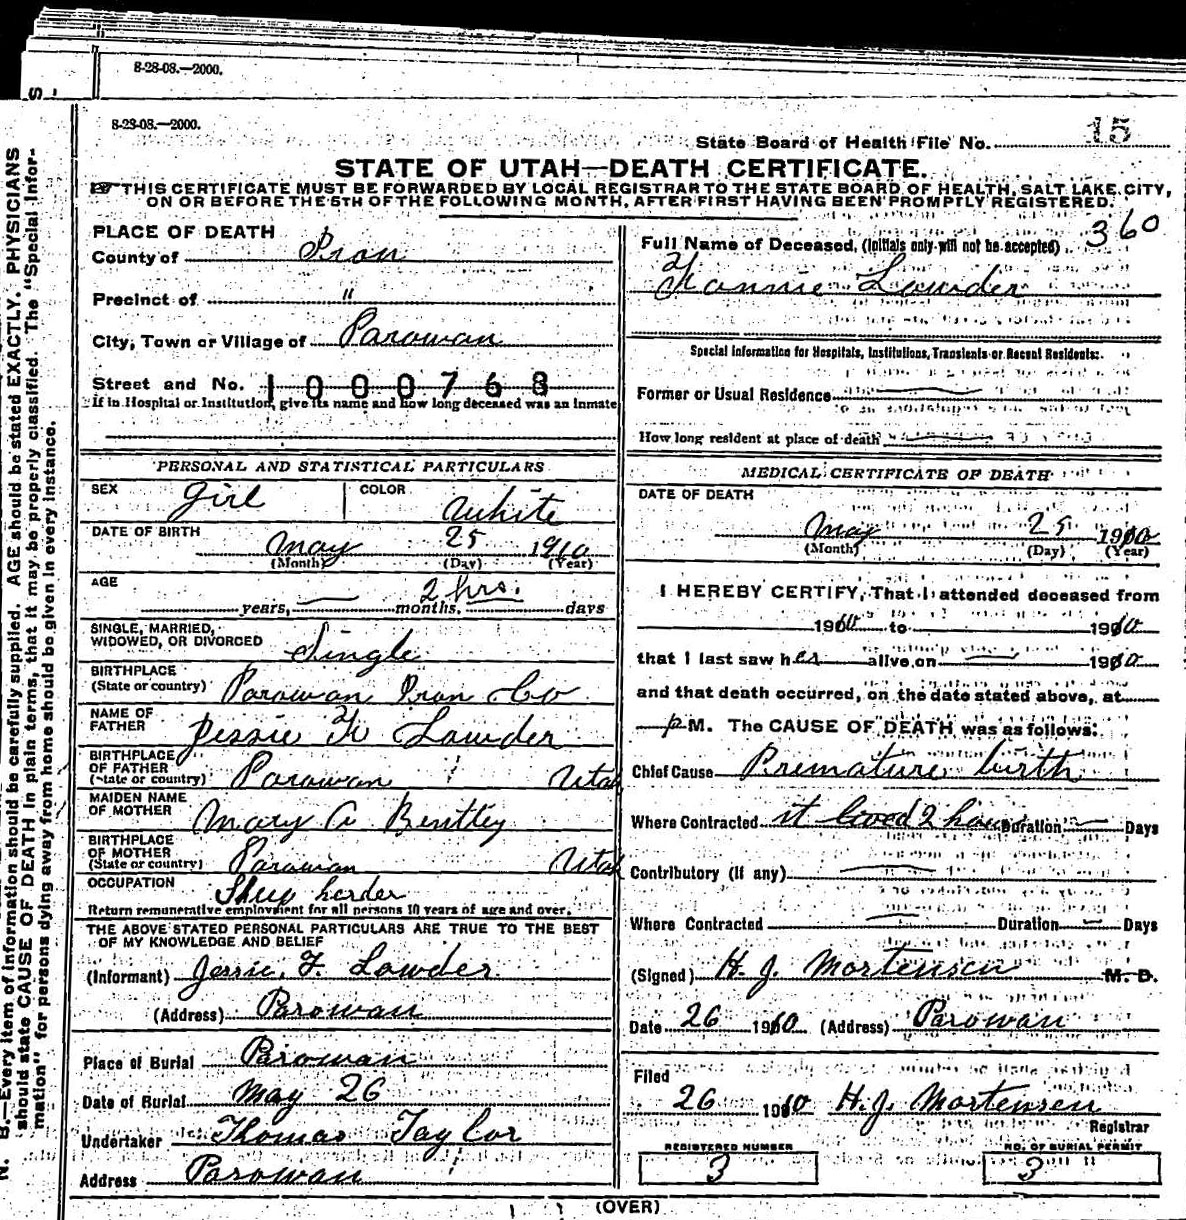 8-28-08.—2000.
8-23-08.—2000.
State Board of Health File No. 15
STATE OF UTAH—DEATH CERTIFICATE.
THIS CERTIFICATE MUST BE FORWARDED BY LOCAL REGISTRAR TO THE STATE BOARD OF HEALTH, SALT LAKE CITY,
ON OR BEFORE THE 5TH OF THE FOLLOWING MONTH, AFTER FIRST HAVING BEEN PROMPTLY REGISTERED.
PLACE OF DEATH
County of Iron
Precinct of "
City, Town or Village of Parowan
Street and No. 1000768
If in Hospital or Institution, give its name and how long deceased was an inmate
PERSONAL AND STATISTICAL PARTICULARS
SEX Girl COLOR White
DATE OF BIRTH May 25 1910
(Month) (Day) (Year)
AGE 2 hrs.
years, months, days
SINGLE, MARRIED,
WIDOWED, OR DIVORCED Single
BIRTHPLACE
(State or country) Parowan Iron Co
NAME OF
FATHER Jessie F Lowder
BIRTHPLACE
OF FATHER
(State or country) Parowan Utah
MAIDEN NAME
OF MOTHER Mary A Bentley
BIRTHPLACE
OF MOTHER
(State or country) Parowan Utah
OCCUPATION Sheep herder
Return remunerative employment for all persons 10 years of age and over.
THE ABOVE STATED PERSONAL PARTICULARS ARE TRUE TO THE BEST
OF MY KNOWLEDGE AND BELIEF
(Informant) Jessie. F. Lowder
(Address) Parowan
Place of Burial Parowan
Date of Burial May 26
Undertaker Thomas Taylor
Address Parowan
360
Full Name of Deceased, (Initials only will not be accepted)
Fannie Lowder
Special Information for Hospitals, Institutions, Transients or Recent Residents:
Former or Usual Residence
How long resident at place of death
MEDICAL CERTIFICATE OF DEATH
DATE OF DEATH
May 25 1910
(Month) (Day) (Year)
I HEREBY CERTIFY, That I attended deceased from
1910 to 1910
that I last saw her alive on 1910
and that death occurred, on the date stated above, at
P M. The CAUSE OF DEATH was as follows:
Chief Cause Premature birth
Where Contracted it lived 2 hours Duration Days
Contributory (If any)
Where Contracted Duration Days
(Signed) H. J. Mortensen M. D.
Date 26 1910 (Address) Parowan
Filed
26 1910 H. J. Mortensen
Registrar
REGISTERED NUMBER
3
NO. OF BURIAL PERMIT
3
(OVER)
N. B.—Every item of information should be carefully supplied. AGE should be stated EXACTLY. PHYSICIANS
should state CAUSE OF DEATH in plain terms, that it may be properly classified. The "Special Infor-
mation" for persons dying away from home should be given in every instance.